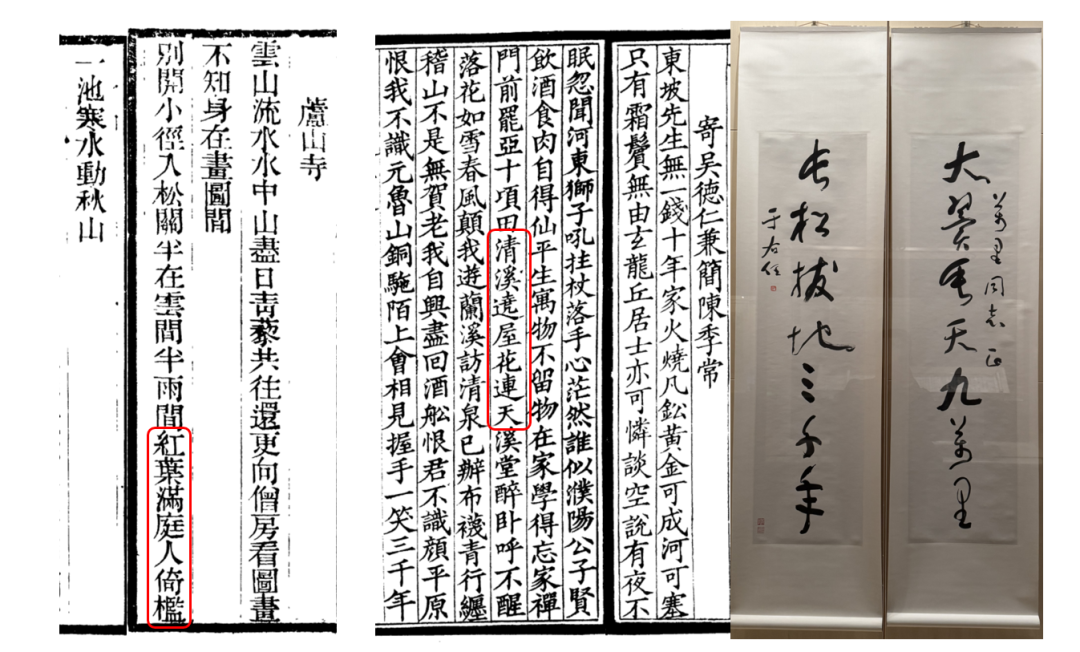 蘆山寺
雲山流水水中山盡日青藜共往還更向僧房看圖畫
不知身在畫圖間
別開小徑入松關半在雲間半雨間紅葉滿庭人倚檻
一池寒水動秋山
寄吳德仁兼簡陳季常
東坡先生無一錢十年家火燒凡鉛黃金可成河可塞
只有霜鬢無由玄龍丘居士亦可憐談空說有夜不
眠忽聞河東獅子吼拄杖落手心茫然誰似濮陽公子賢
飲酒食肉自得仙平生寓物不留物在家學得忘家禪
門前罷亞十頃田清溪遶屋花連天溪堂醉臥呼不醒
落花如雪春風顛我遊蘭溪訪清泉已辦布襪青行纏
稽山不是無賀老我自興盡回酒舩恨君不識顏平原
恨我不識元魯山銅駞陌上會相見握手一笑三千年
大翼垂天九萬里
萬里同志正
長松拔地三千年
于右任